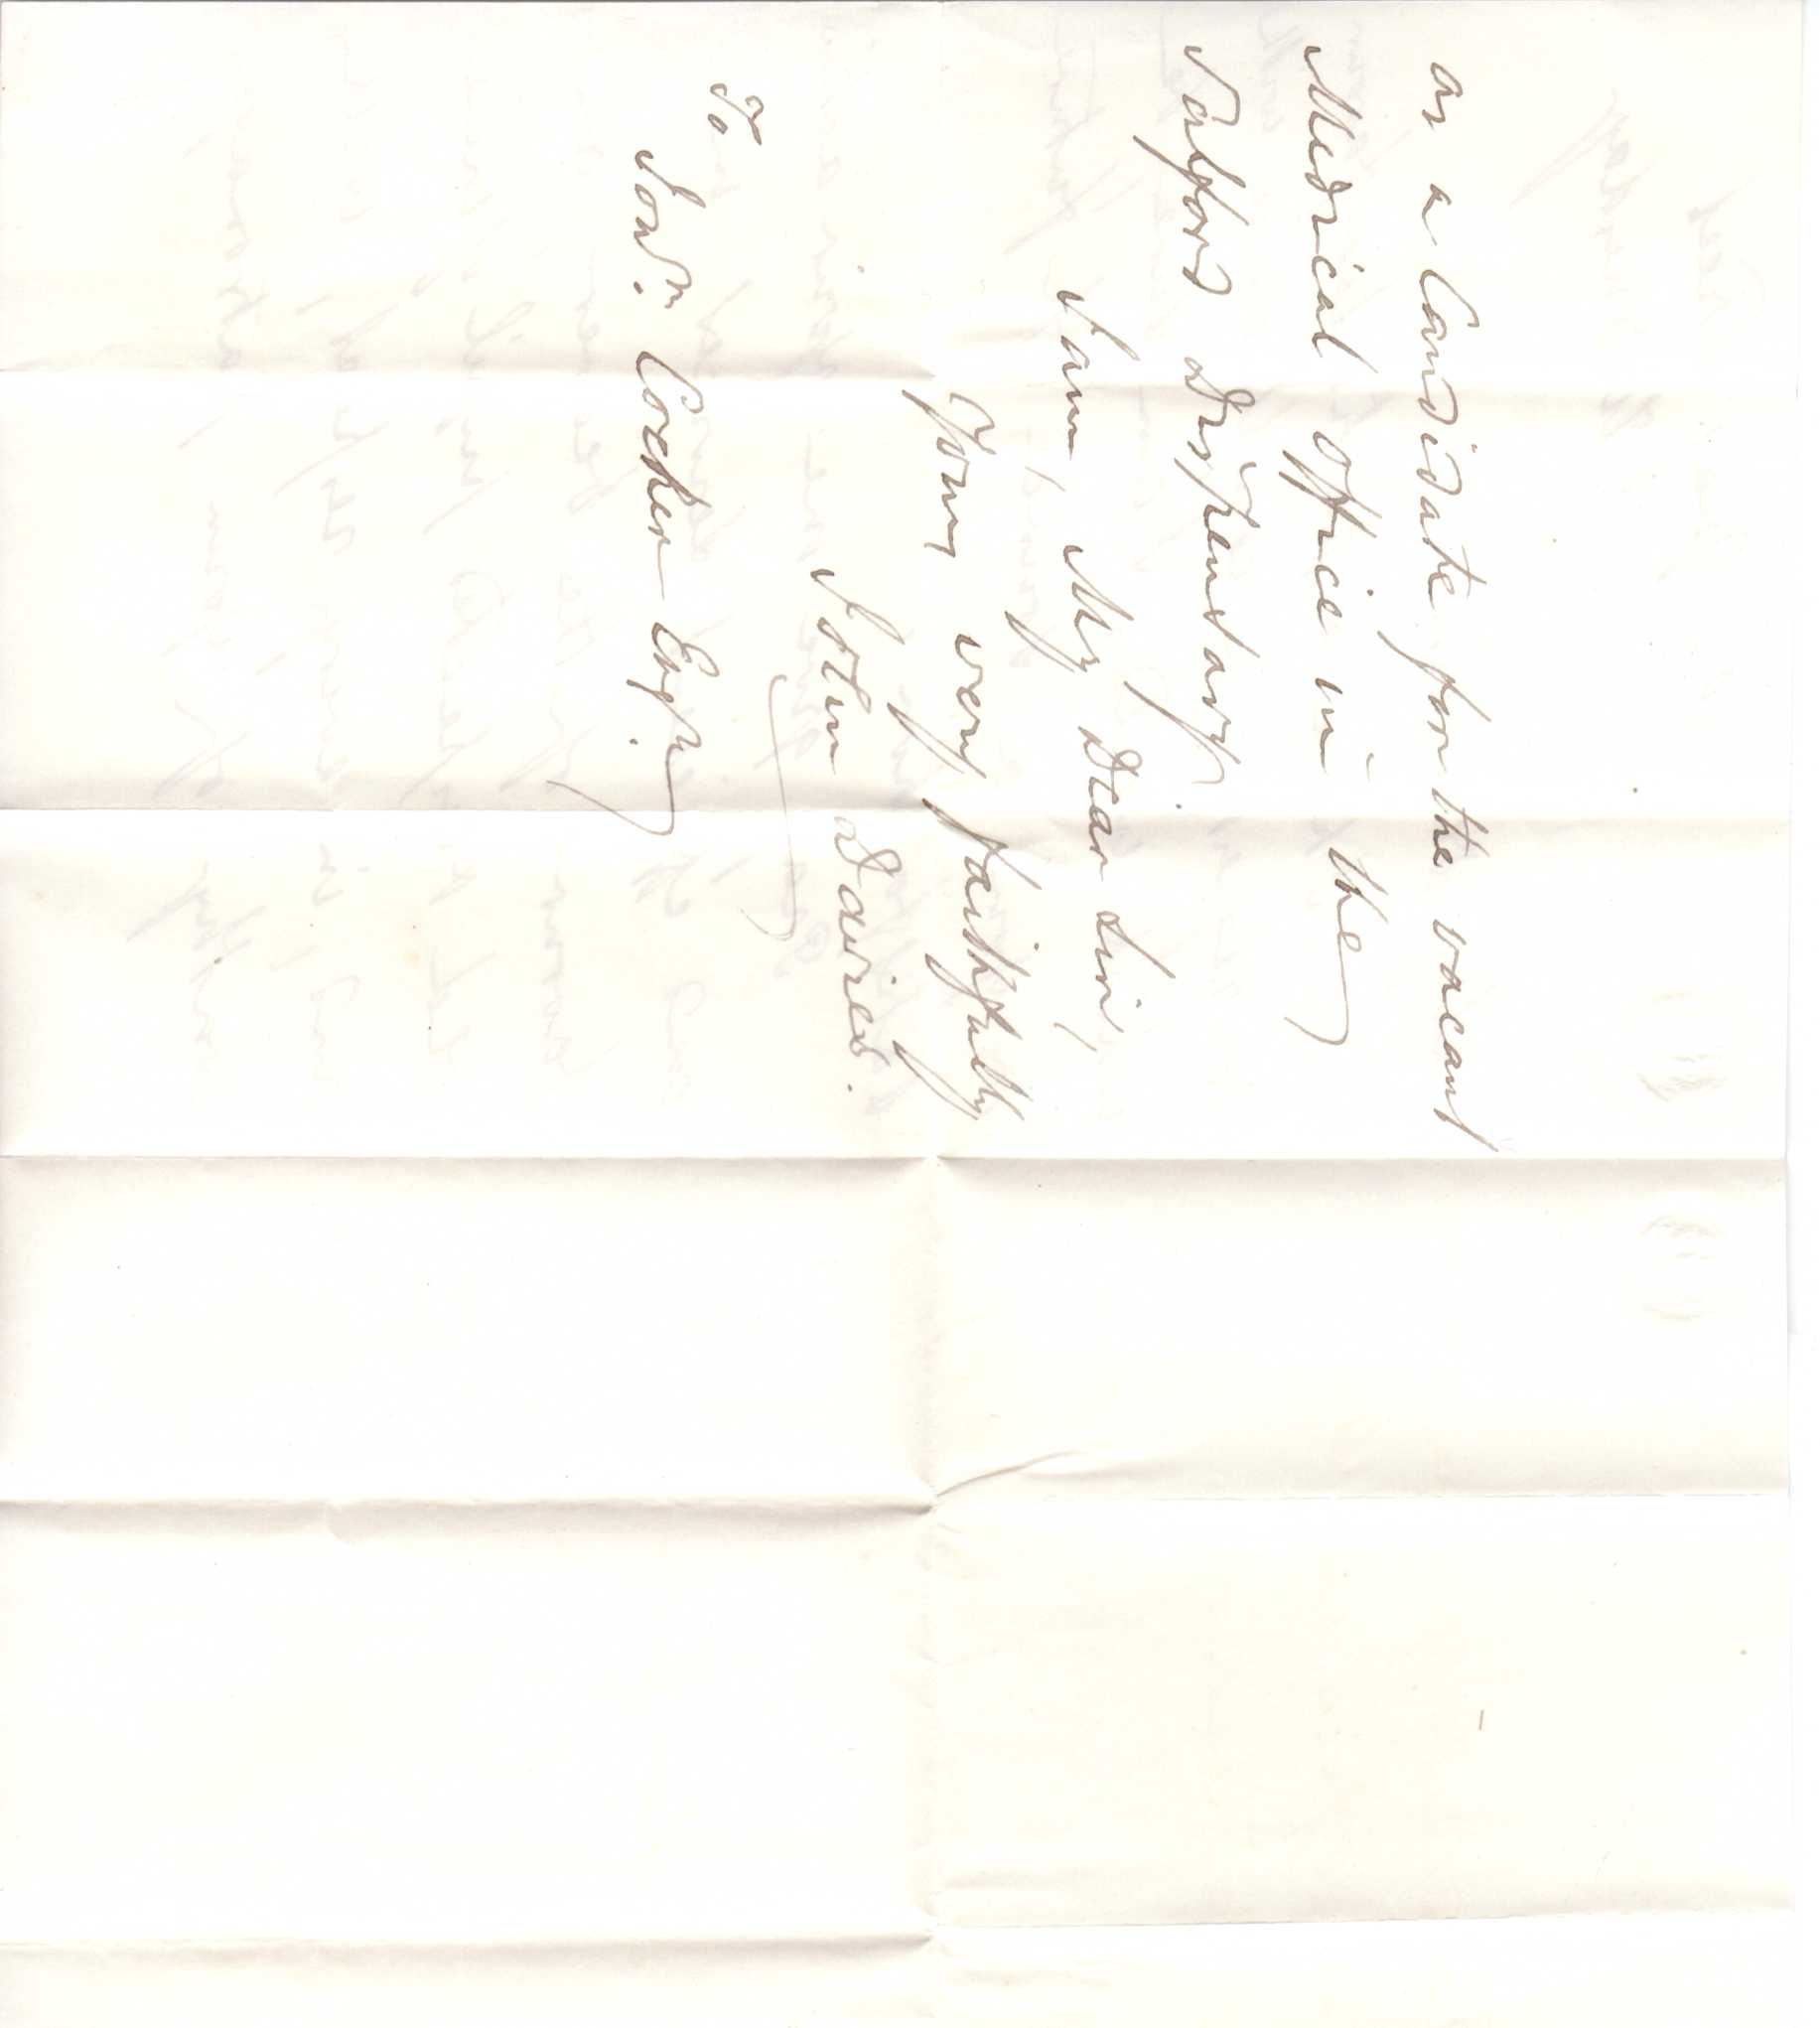 as a Candidate for the vacant
Medical office in the
Salford Dispensary.
I am, My Dear Sir,
Yours very faithfully
John Davies.
To
Jonn. Cocker Esqr.